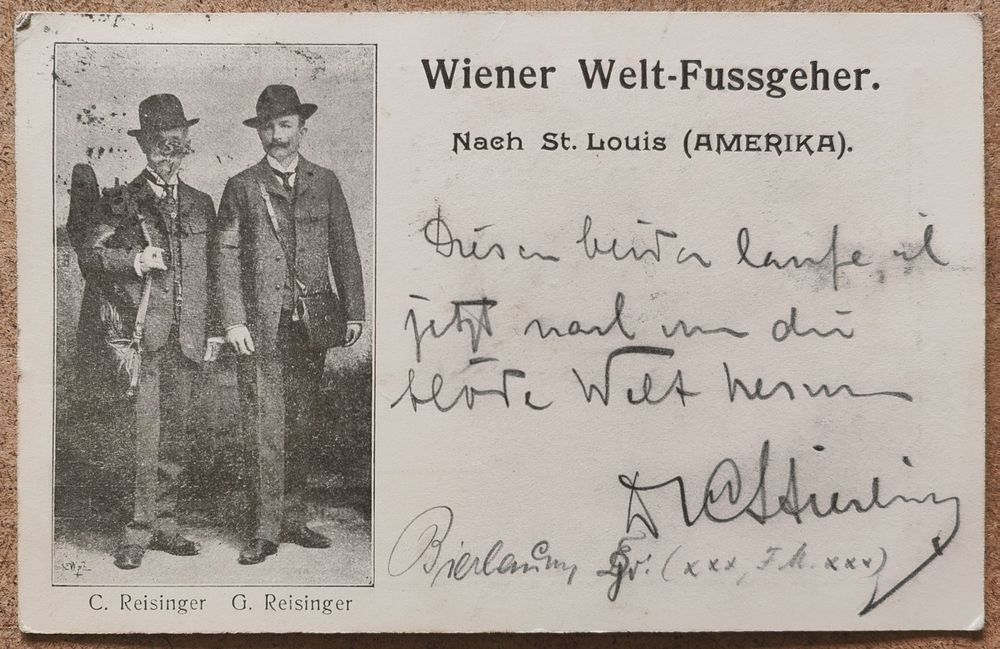 Wiener Welt-Fussgeher.
Nach St. Louis (AMERIKA).
Diesen beiden laufe ich
jetzt nach um die
blöde Welt herum
C. Reisinger G. Reisinger